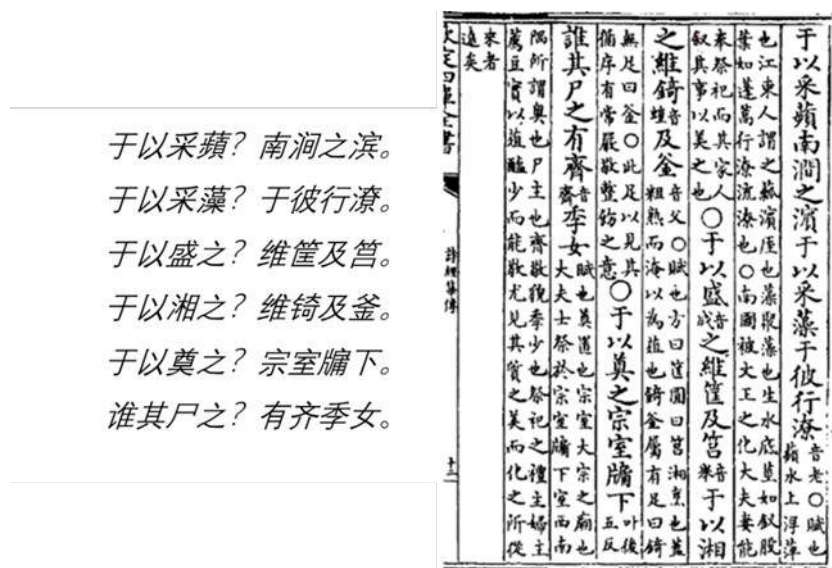 于以采蘋？南涧之滨。
于以采藻？于彼行潦。
于以盛之？维筐及筥。
于以湘之？维锜及釜。
于以奠之？宗室牖下。
谁其尸之？有齐季女。
于以采蘋南澗之濱于以采藻于彼行潦音老○賦也蘋水上浮萍
也江東人謂之薸濱厓也藻聚藻也生水底莖如釵股
葉如蓬蒿行潦流潦也○南國被文王之化大夫妻能
奉祭祀而其家人叙其事以美之也○于以盛音成之維筐及筥音舉于以湘
之維錡音及釜音父○賦也方曰筐圓曰筥湘烹也蓋粗熟而淹以為葅也錡釜屬有足曰錡
無足曰釜○此足以見其循序有常嚴敬整飭之意○于以奠之宗室牖下叶後五反
誰其尸之有齊音齋季女賦也奠置也宗室大宗之廟也大夫士祭於宗室牖下室西南
隅所謂奥也尸主也齊敬貌季少也祭祀之禮主婦主
薦豆實以葅醢少而能敬尤見其質之美而化之所從
來者
逺矣
欽定四庫全書
詩經集傳
十二